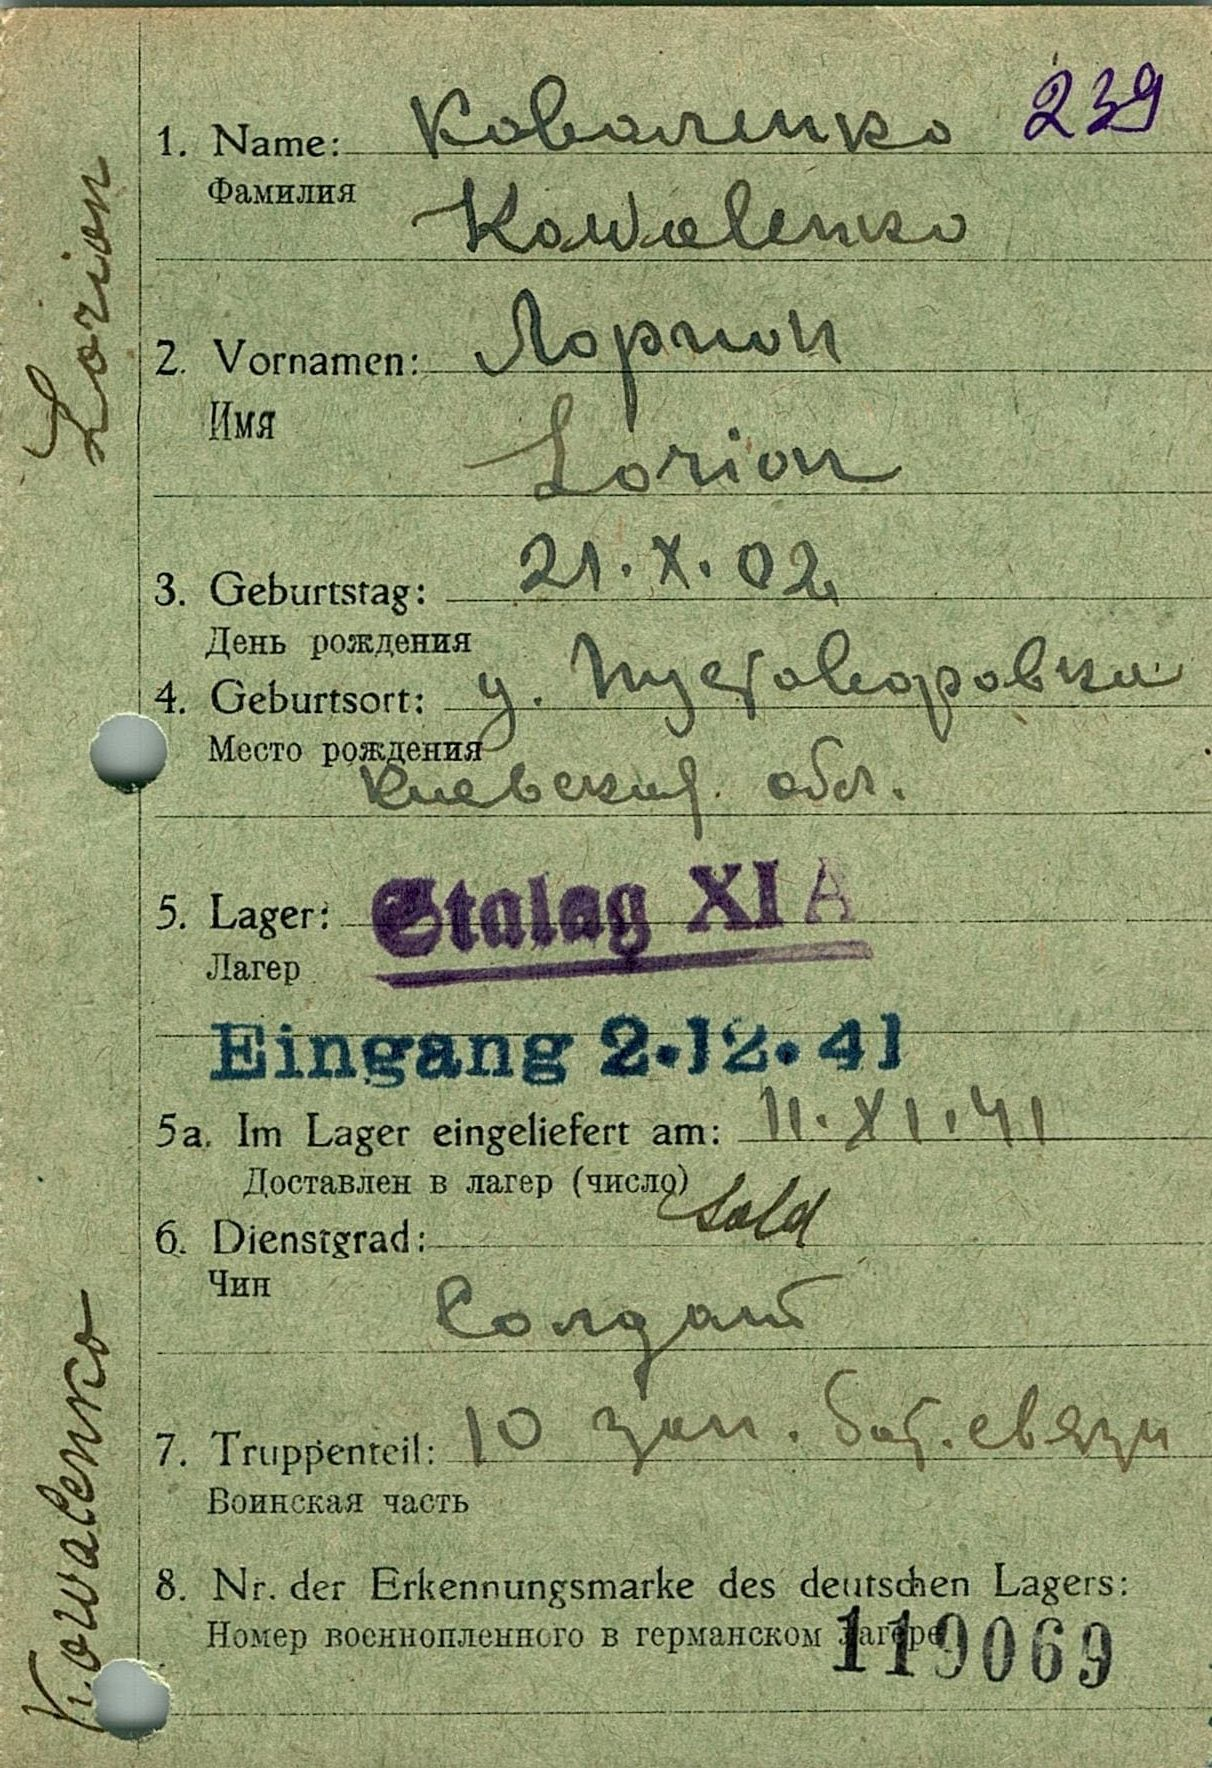 239
1. Name: Коваленко
Фамилия
Kowalenko
2. Vornamen: Лорион
Имя
Lorion
3. Geburtstag: 21.X.02
День рождения
4. Geburtsort:
Место рождения
Киевской обл.
5. Lager: Stalag XI A
Лагер
Eingang 2.12.41
5a. Im Lager eingeliefert am: 11.XI.41
Доставлен в лагер (число)
6. Dienstgrad: Sold
Чин
Солдат
7. Truppenteil: 10 зап. бат. связи
Воинская часть
8. Nr. der Erkennungsmarke des deutschen Lagers:
Номер военнопленного в германском лагере 119069
Kowalenko
Lorion